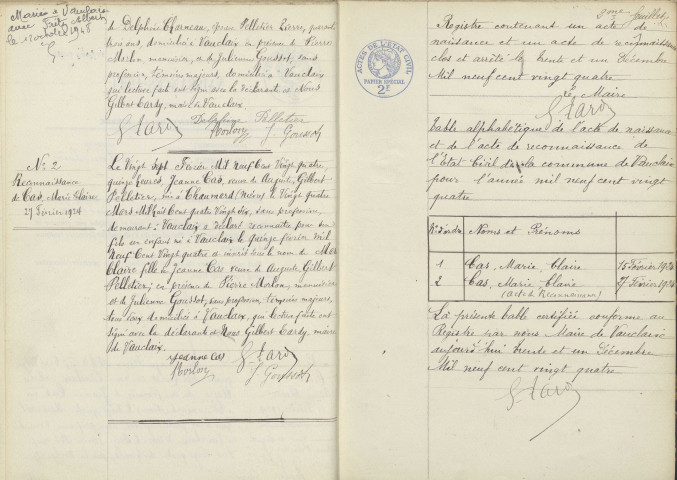 Mariée à Vauclaix
avec
le 12 octobre 1948
de Delphine Charneau, épouse Pelletier Larré, quarante
trois ans, domiciliée à Vauclaix en présence de Pierre
Morlon manuvrier, et de Julienne Goussot, sans
profession, témoins majeurs, domiciliés à Vauclaix
qui lecture faite ont signé avec la déclarante et Nous
Gilbert Tardy, maire de Vauclaix,
Delphine Pelletier
G Tardy Morlon J Goussot
No 2
Reconnaissance
de Cas, Marie Claire
27 Février 1924
Le Vingt Sept Février Mil Neuf Cent Vingt quatre,
quinze heures, Jeanne Cas, veuve de Auguste, Gilbert
Pelletier, née à Chaumard (Nièvre) le Vingt quatre
Mars Mil huit Cent quatre Vingt Six, sans profession,
demeurant à Vauclaix a déclaré reconnaître pour son
fils un enfant né à Vauclaix le quinze février Mil
Neuf Cent Vingt quatre et inscrit sous le nom de Marie
Claire fille de Jeanne Cas veuve de Auguste, Gilbert
Pelletier, en présence de Pierre Morlon, manuvrier
et de Julienne Goussot, sans profession, témoins majeurs,
tous deux domiciliés à Vauclaix, qui lecture faite ont
signé avec la déclarante et Nous Gilbert Tardy maire
de Vauclaix.
Jeanne Cas G Tardy
Morlon J Goussot
2ème feuillet
ACTES DE L'ÉTAT CIVIL
PAPIER SPÉCIAL
2F
Registre contenant un acte de
naissance et un acte de reconnaissance
clos et arrêté le trente et un Décembre
Mil neuf cent vingt quatre
Le Maire
G Tardy
Table alphabétique de l'acte de naissance
et de l'acte de reconnaissance de
l'Etat Civil de la commune de Vauclaix
pour l'année mil neuf cent vingt
quatre
No d'ordre Noms et Prénoms
1 Cas, Marie Claire 15 Février 1924
2 Cas, Marie Claire 27 Février 1924
(acte de Reconnaissance)
La présente table certifiée conforme au
Registre par nous, Maire de Vauclaix
aujourd'hui trente et un Décembre
Mil neuf cent vingt quatre
G Tardy